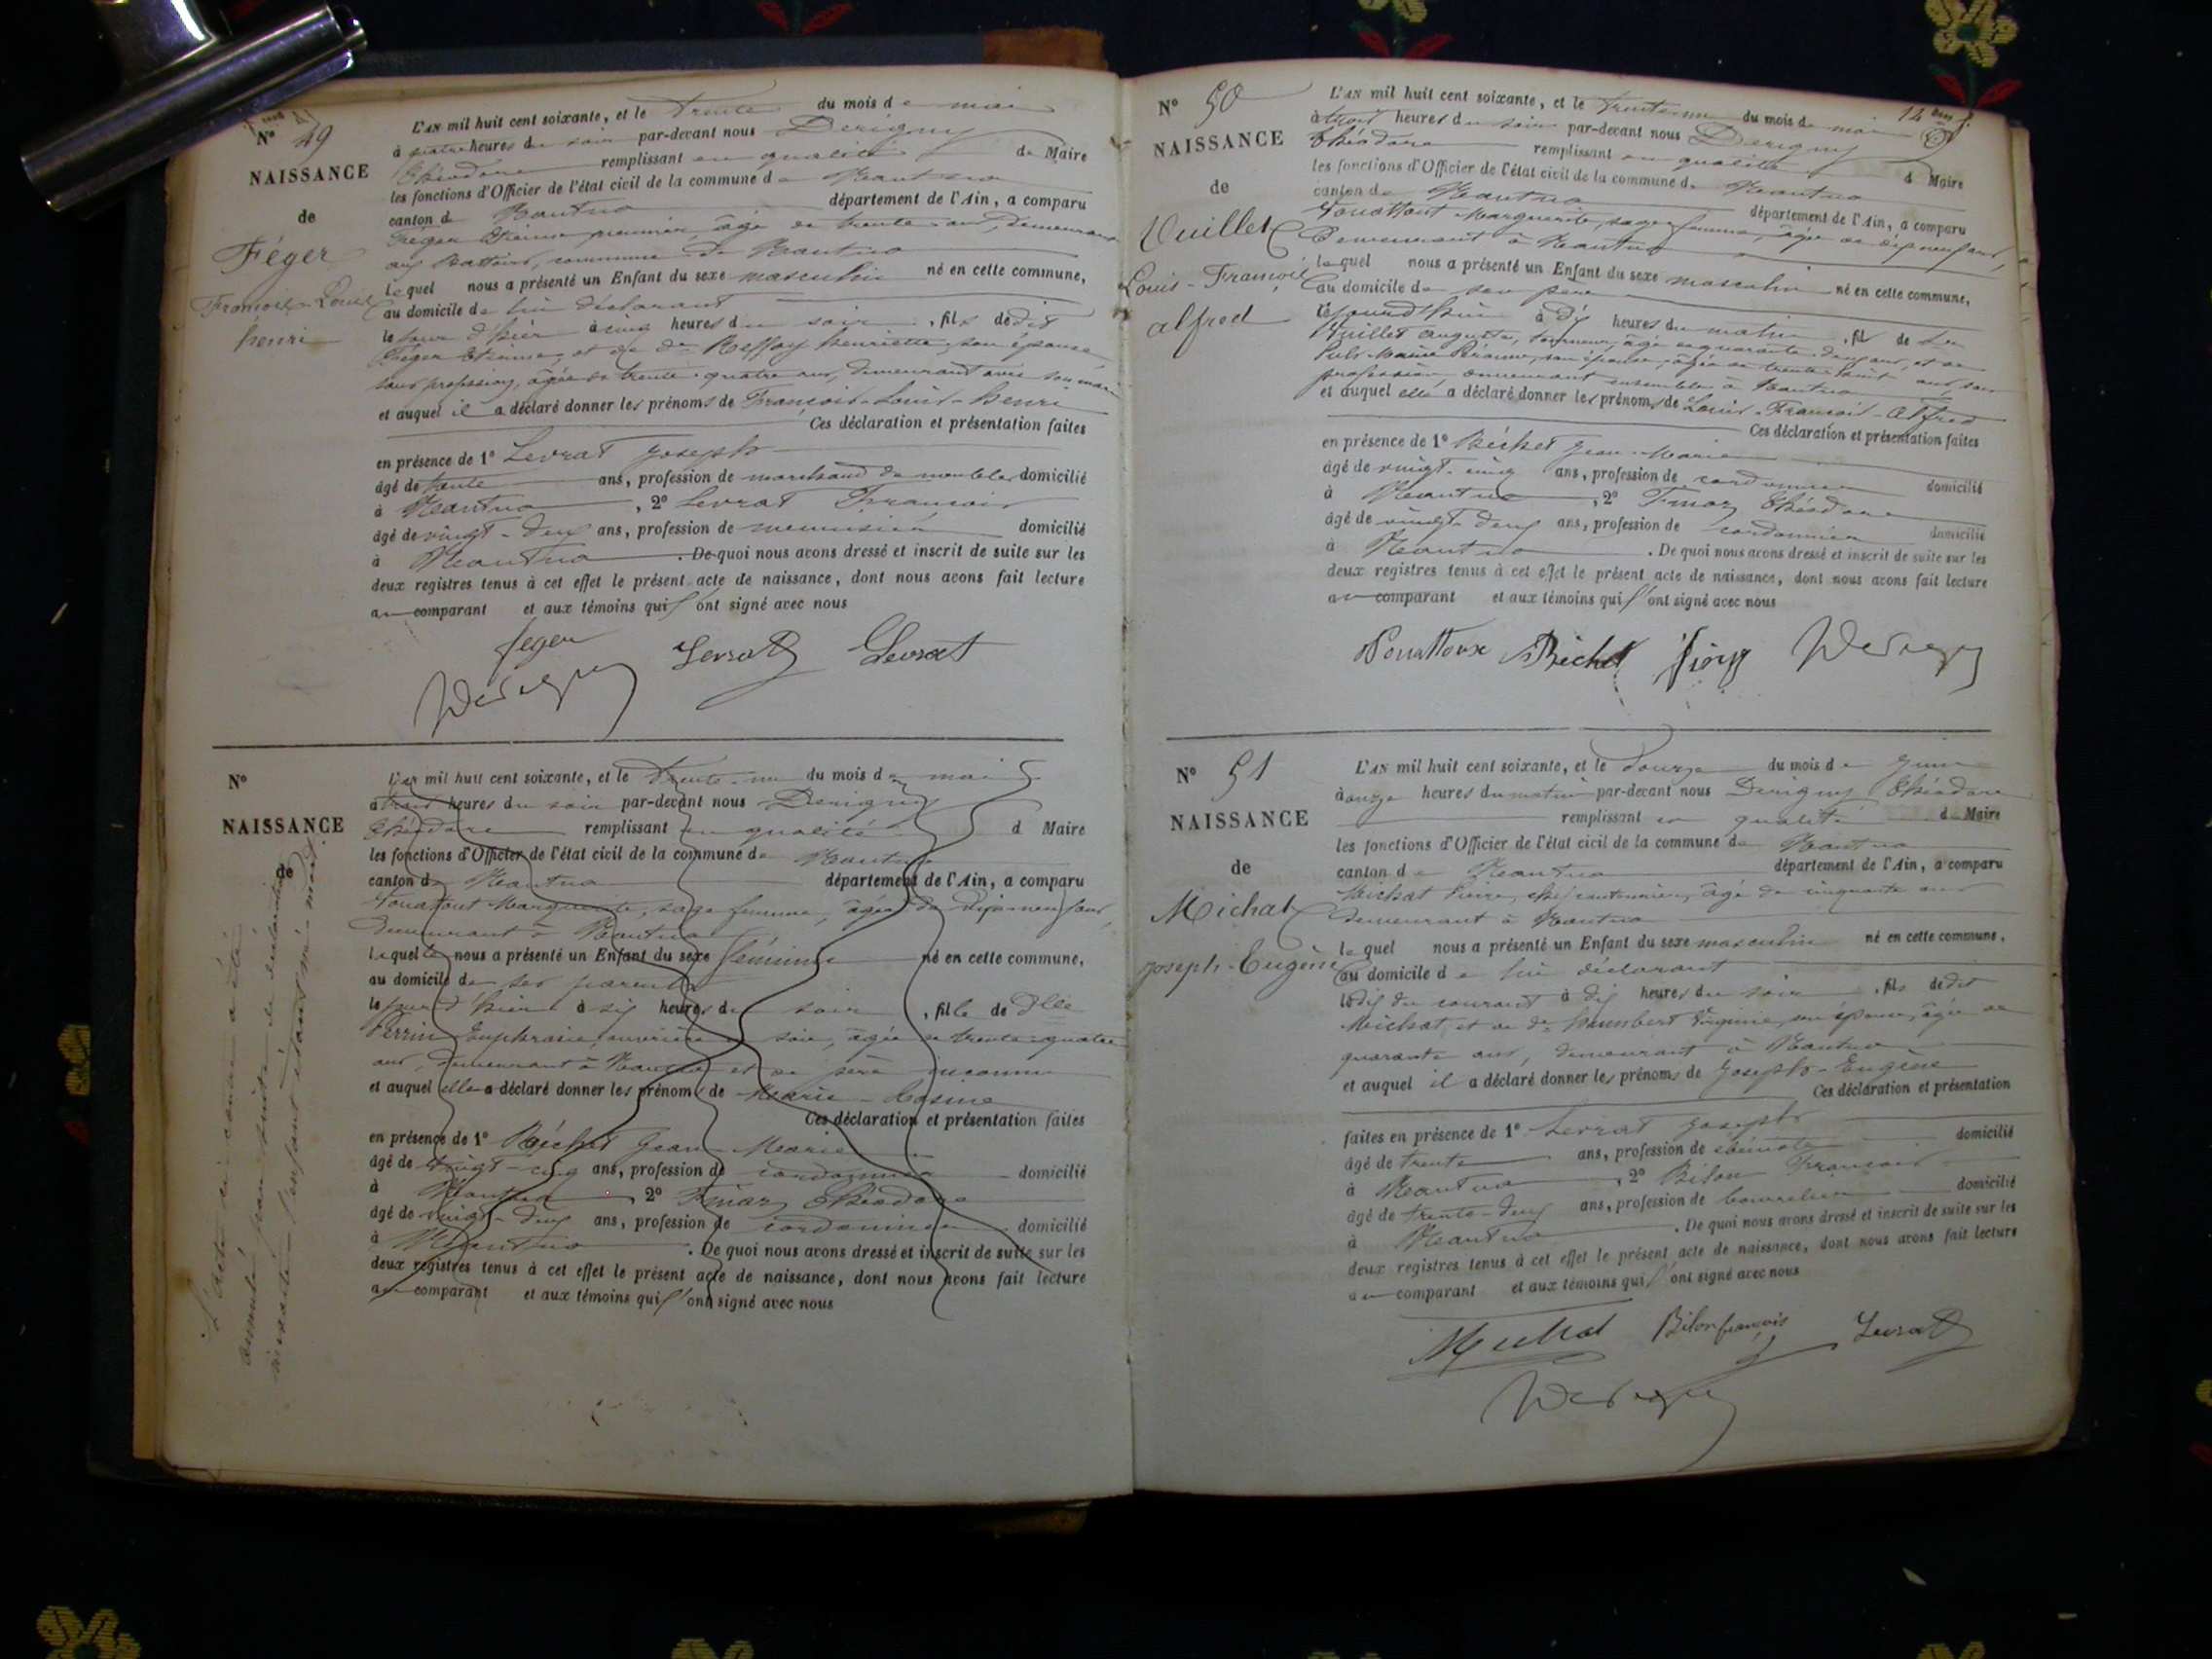 N° 49
NAISSANCE
de
Féger
François-Louis
henri
L'AN mil huit cent soixante, et le trente du mois de mai
à quatre heures du soir par-devant nous Derigny
Théodore remplissant en qualité de Maire
les fonctions d'Officier de l'état civil de la commune de Nantua
canton de Nantua département de l'Ain, a comparu
Féger Etienne, âgé de trente ans, demeurant
aux Battoirs, commune de Nantua
lequel nous a présenté un Enfant du sexe masculin né en cette commune,
au domicile de lui déclarant
le jour d'hier à cinq heures du soir, fils de dit
Féger Etienne, et de de Reffay henriette, son épouse
sans profession, âgée de trente-quatre ans, demeurant avec son mari
et auquel il a déclaré donner les prénoms de François-Louis-henri
Ces déclaration et présentation faites
en présence de 1° Levrat Joseph
âgé de trente ans, profession de marchand de meubles domicilié
à Nantua, 2° Levrat François
âgé de vingt-deux ans, profession de menuisier domicilié
à Nantua. De quoi nous avons dressé et inscrit de suite sur les
deux registres tenus à cet effet le présent acte de naissance, dont nous avons fait lecture
au comparant et aux témoins qui l'ont signé avec nous
feger Levrat Levrat
Derigny
N°
NAISSANCE
de
L'acte ci-contre a été
annulé
l'enfant étant mort
L'AN mil huit cent soixante, et le trente-un du mois de mai
à trois heures du soir par-devant nous Derigny
Théodore remplissant en qualité d Maire
les fonctions d'Officier de l'état civil de la commune de Nantua
canton de Nantua département de l'Ain, a comparu
Marguerite, sage femme, âgée de dix-neuf ans,
demeurant à Nantua
laquelle nous a présenté un Enfant du sexe féminin né en cette commune,
au domicile de ses parents
le jour d'hier à six heures du soir, fille de dlle
Perrin Euphrasie, ouvrière en soie, âgée de trente-quatre
ans, demeurant à Nantua et de père inconnu
et auquel elle a déclaré donner les prénoms de Marie-
Ces déclaration et présentation faites
en présence de 1° Béchet Jean-Marie
âgé de vingt-cinq ans, profession de cordonnier domicilié
à Nantua, 2° Théodore
âgé de vingt-deux ans, profession de cordonnier domicilié
à Nantua. De quoi nous avons dressé et inscrit de suite sur les
deux registres tenus à cet effet le présent acte de naissance, dont nous avons fait lecture
au comparant et aux témoins qui l'ont signé avec nous
N° 50
NAISSANCE
de
Vuillet
Louis-François
alfred
L'AN mil huit cent soixante, et le trente-un du mois de mai
à trois heures du soir par-devant nous Derigny
Théodore remplissant en qualité d Maire
les fonctions d'Officier de l'état civil de la commune de Nantua
canton de Nantua département de l'Ain, a comparu
Marguerite, sage femme, âgée de dix-neuf ans,
Demeurant à Nantua
lequel nous a présenté un Enfant du sexe masculin né en cette commune,
au domicile de son père
aujourd'hui à dix heures du matin, fils de
Vuillet auguste, tourneur, âgé de quarante-deux ans, et de
son épouse, âgée de trente-huit ans, sans
profession, demeurant ensemble à Nantua
et auquel elle a déclaré donner les prénoms de Louis-François-Alfred
Ces déclaration et présentation faites
en présence de 1° Béchet Jean-Marie
âgé de vingt-cinq ans, profession de cordonnier domicilié
à Nantua, 2° Théodore
âgé de vingt-deux ans, profession de cordonnier domicilié
à Nantua. De quoi nous avons dressé et inscrit de suite sur les
deux registres tenus à cet effet le présent acte de naissance, dont nous avons fait lecture
au comparant et aux témoins qui l'ont signé avec nous
Béchet Derigny
N° 51
NAISSANCE
de
Michat
Joseph-Eugène
L'AN mil huit cent soixante, et le douze du mois de juin
à onze heures du matin par-devant nous Derigny Théodore
remplissant en qualité d Maire
les fonctions d'Officier de l'état civil de la commune de Nantua
canton de Nantua département de l'Ain, a comparu
Michat Pierre, chef cantonnier, âgé de cinquante ans
demeurant à Nantua
lequel nous a présenté un Enfant du sexe masculin né en cette commune,
au domicile de lui déclarant
le dix du courant à dix heures du soir, fils de dit
Michat, et de de humbert Virginie, son épouse, âgée de
quarante ans, demeurant à Nantua
et auquel il a déclaré donner les prénoms de Joseph-Eugène
Ces déclaration et présentation
faites en présence de 1° Levrat Joseph
âgé de trente ans, profession de ébéniste domicilié
à Nantua, 2° Bilon François
âgé de trente-deux ans, profession de bourrelier domicilié
à Nantua. De quoi nous avons dressé et inscrit de suite sur les
deux registres tenus à cet effet le présent acte de naissance, dont nous avons fait lecture
au comparant et aux témoins qui l'ont signé avec nous
Michat Bilon françois Levrat
Derigny